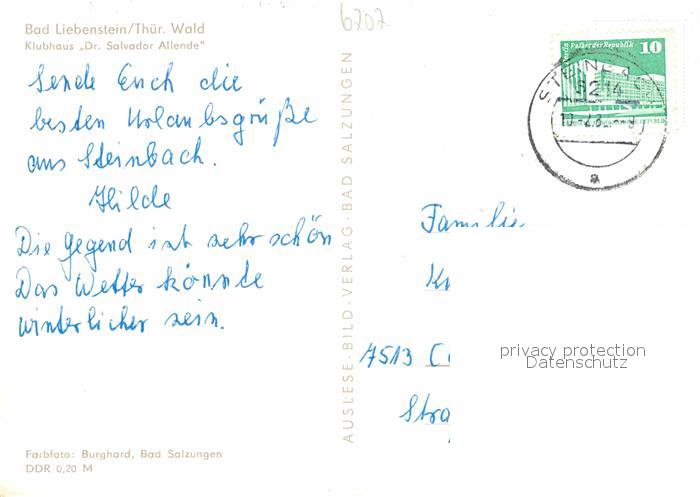 6202
Bad Liebenstein/Thür. Wald
Klubhaus „Dr. Salvador Allende"
Sende Euch die
besten Urlaubsgrüße
aus Steinbach.
Hilde
Die Gegend ist sehr schön
Das Wetter könnte
winterlicher sein.
Farbfoto: Burghard, Bad Salzungen
DDR 0,20 M
AUSLESE-BILD-VERLAG · BAD SALZUNGEN
Palast der Republik 10
6214
a
Familie
7513
privacy protection
Datenschutz